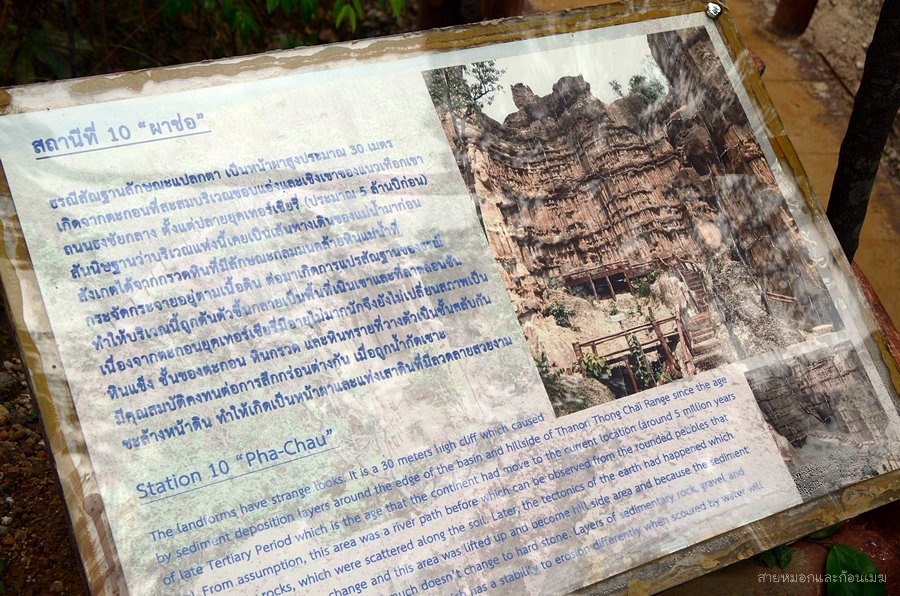 สถานีที่ 10 “ผาช่อ”
ธรณีสัณฐานลักษณะแปลกตา เป็นหน้าผาสูงประมาณ 30 เมตร
เกิดจากตะกอนที่สะสมบริเวณขอบแอ่งและเชิงเขาของแนวเทือกเขา
ถนนธงชัยกลาง ตั้งแต่ปลายยุคเทอร์เชียรี่ (ประมาณ 5 ล้านปีก่อน)
สันนิษฐานว่าบริเวณแห่งนี้เคยเป็นเส้นทางเดินของแม่น้ำมาก่อน
สังเกตได้จากกรวดหินที่มีลักษณะกลมมนคล้ายหินแม่น้ำที่
กระจัดกระจายอยู่ตามเนื้อดิน ต่อมาเกิดการแปรสัณฐานของธรณี
ทำให้บริเวณนี้ถูกดันตัวขึ้นกลายเป็นพื้นที่เนินเขาและที่ลาดลอนชัน
เนื่องจากตะกอนยุคเทอร์เชียรีมีอายุไม่มากนักจึงยังไม่เปลี่ยนสภาพเป็น
หินแข็ง ชั้นของตะกอน หินกรวด และหินทรายที่วางตัวเป็นชั้นสลับกัน
มีคุณสมบัติคงทนต่อการสึกกร่อนต่างกัน เมื่อถูกน้ำกัดเซาะ
ชะล้างหน้าดิน ทำให้เกิดเป็นหน้าผาและแท่งเสาดินที่มีลวดลายสวยงาม
Station 10 “Pha-Chau”
The landforms have strange looks. It is a 30 meters high cliff which caused
by sediment deposition layers around the edge of the basin and hillside of Thanon Thong Chai Range since the age
of late Tertiary Period which is the age that the continent had move to the current location (around 5 million years
). From assumption, this area was a river path before which can be observed from the rounded pebbles that
rocks, which were scattered along the soil. Later, the tectonics of the earth had happened which
change and this area was lifted up and become hill side area and because the sediment
much doesn't change to hard stone. Layers of sedimentary rock, gravel and
has a stability to erosion differently when scoured by water will
สายหมอกและก้อนเมฆ